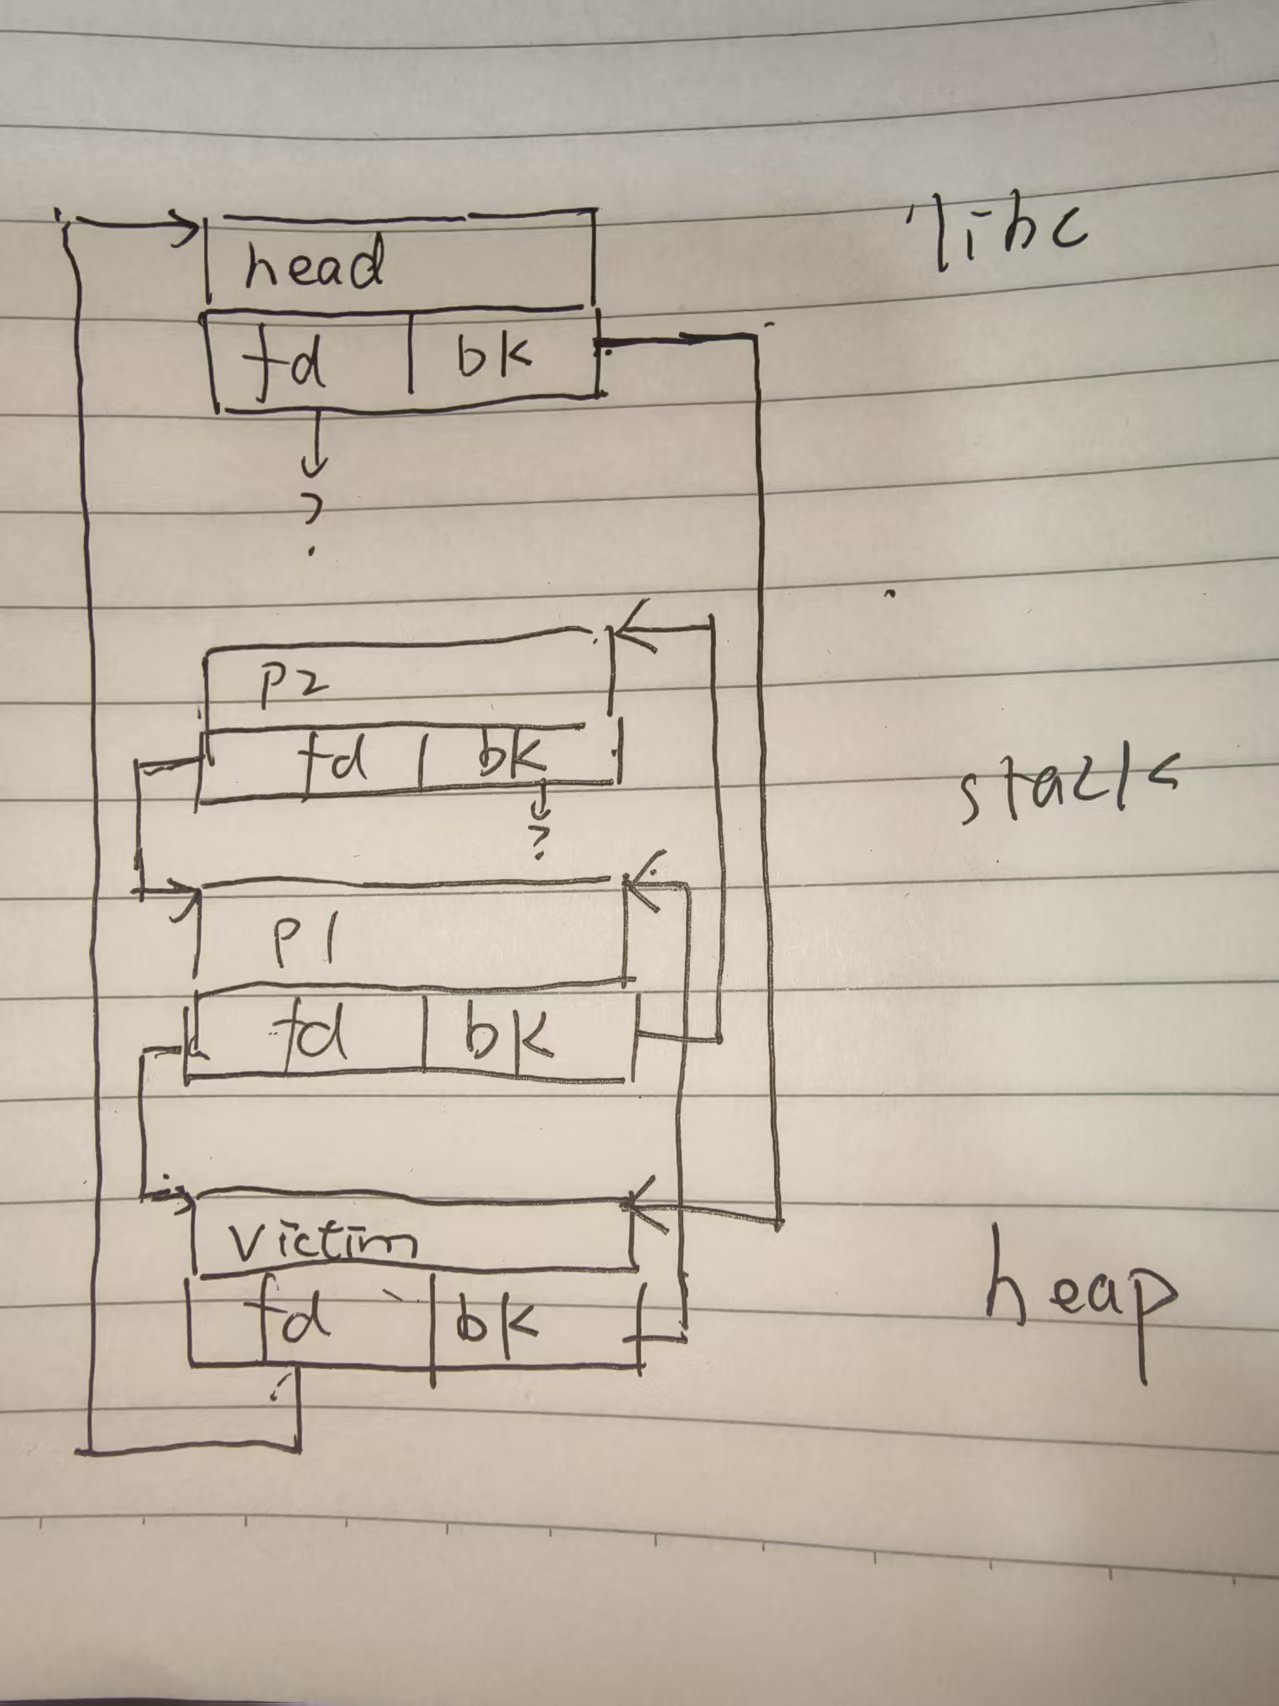 libc
head
fd bk
?
p2
stack
fd bk
?
p1
fd bk
victim
heap
fd bk